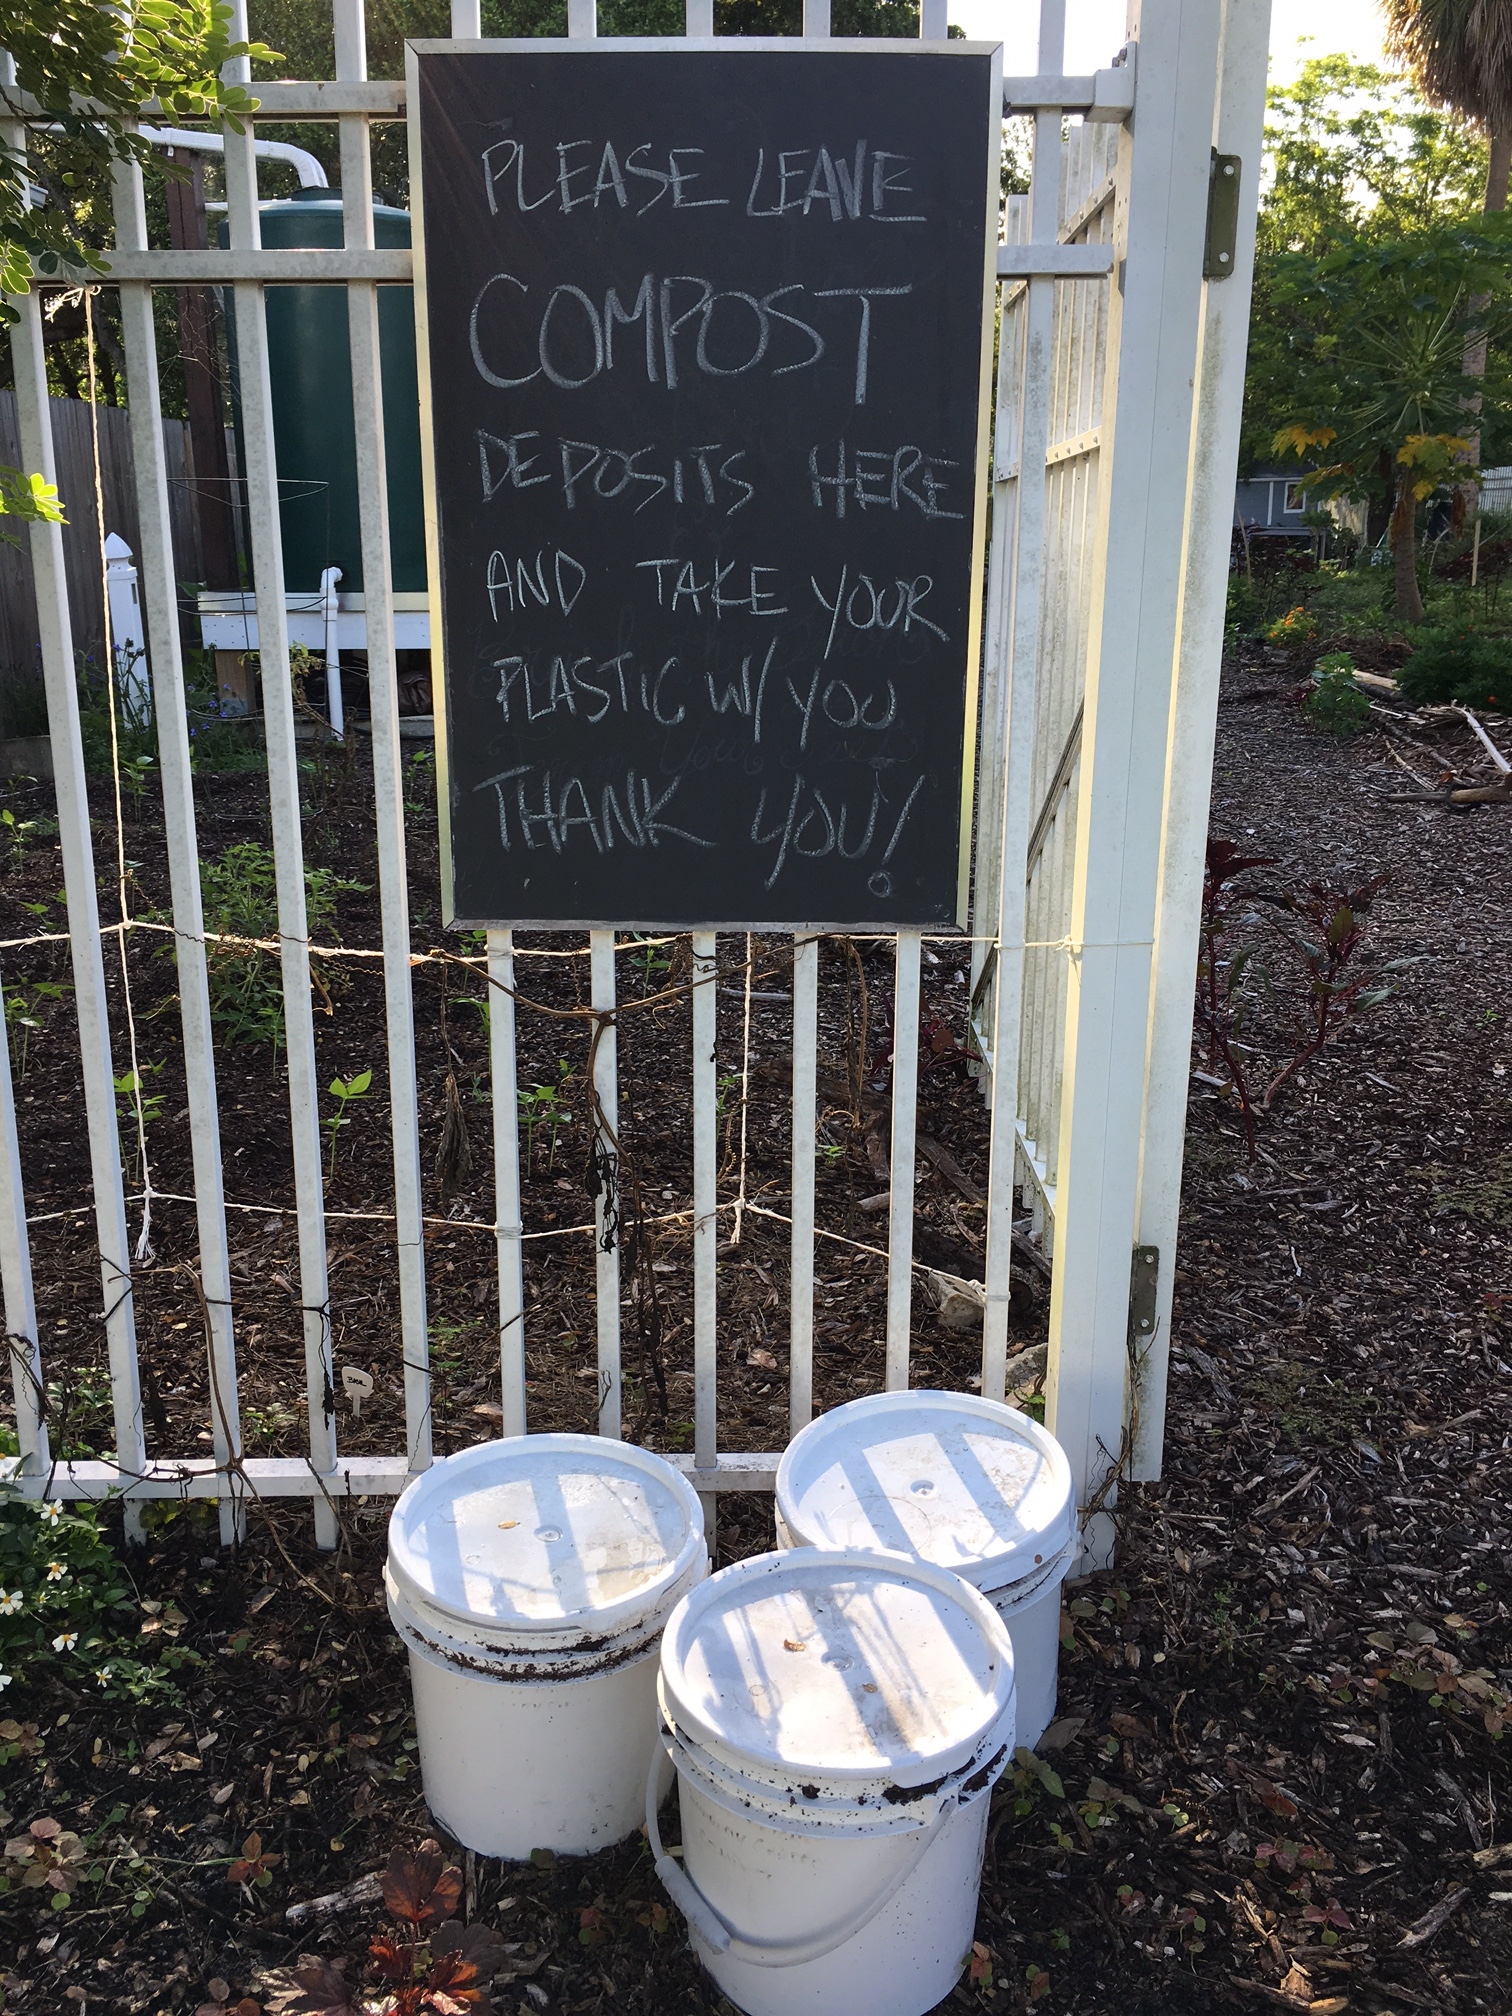 PLEASE LEAVE
COMPOST
DEPOSITS HERE
AND TAKE YOUR
PLASTIC W/ YOU
THANK YOU!